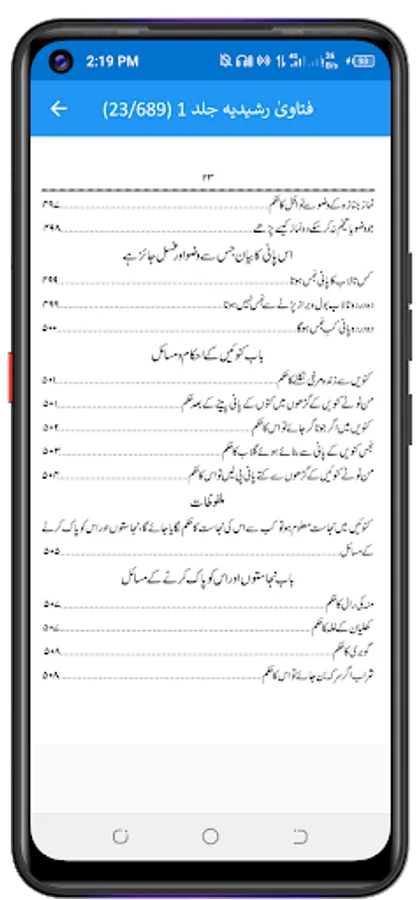 2:19 PM
فتاویٰ رشیدیہ جلد 1 (23/689)
۲۳
نماز جنازہ کے وضو سے نوافل کا حکم ۴۹۷
جو وضو یا تیمم نہ کر سکے وہ نماز کیسے پڑھے ۴۹۸
اس پانی کا بیان جس سے وضو اور غسل جائز ہے
کس تالاب کا پانی نجس ہوتا ۴۹۹
دہ در دہ تالاب بول و براز پڑنے سے نجس نہیں ہوتا ۴۹۹
دہ در دہ پانی کب نجس ہوگا ۵۰۰
باب کنوئیں کے احکام و مسائل
کنویں سے زندہ مرغی نکلنے کا حکم ۵۰۱
من ٹوٹے کنویں کے گڑھوں میں کتوں کے پانی پینے کے بعد حکم ۵۰۱
کنویں میں اگر جوتا گر جائے تو اس کا حکم ۵۰۲
نجس کنویں کے پانی سے بنائے ہوئے گلاب کا حکم ۵۰۳
من ٹوٹے کنویں کے گڑھوں سے کتے پانی پی لیں تو اس کا حکم ۵۰۴
ملفوظات
کنوئیں میں نجاست معلوم ہو تو کب سے اس کی نجاست کا حکم لگایا جائے گا، نجاستوں اور اس کو پاک کرنے
کے مسائل ۵۰۵
باب نجاستوں اور اس کو پاک کرنے کے مسائل
منہ کی رال کا حکم ۵۰۷
کھلیان کے غلہ کا حکم ۵۰۷
گوبری کا حکم ۵۰۸
شراب اگر سرکہ بن جائے تو اس کا حکم ۵۰۸